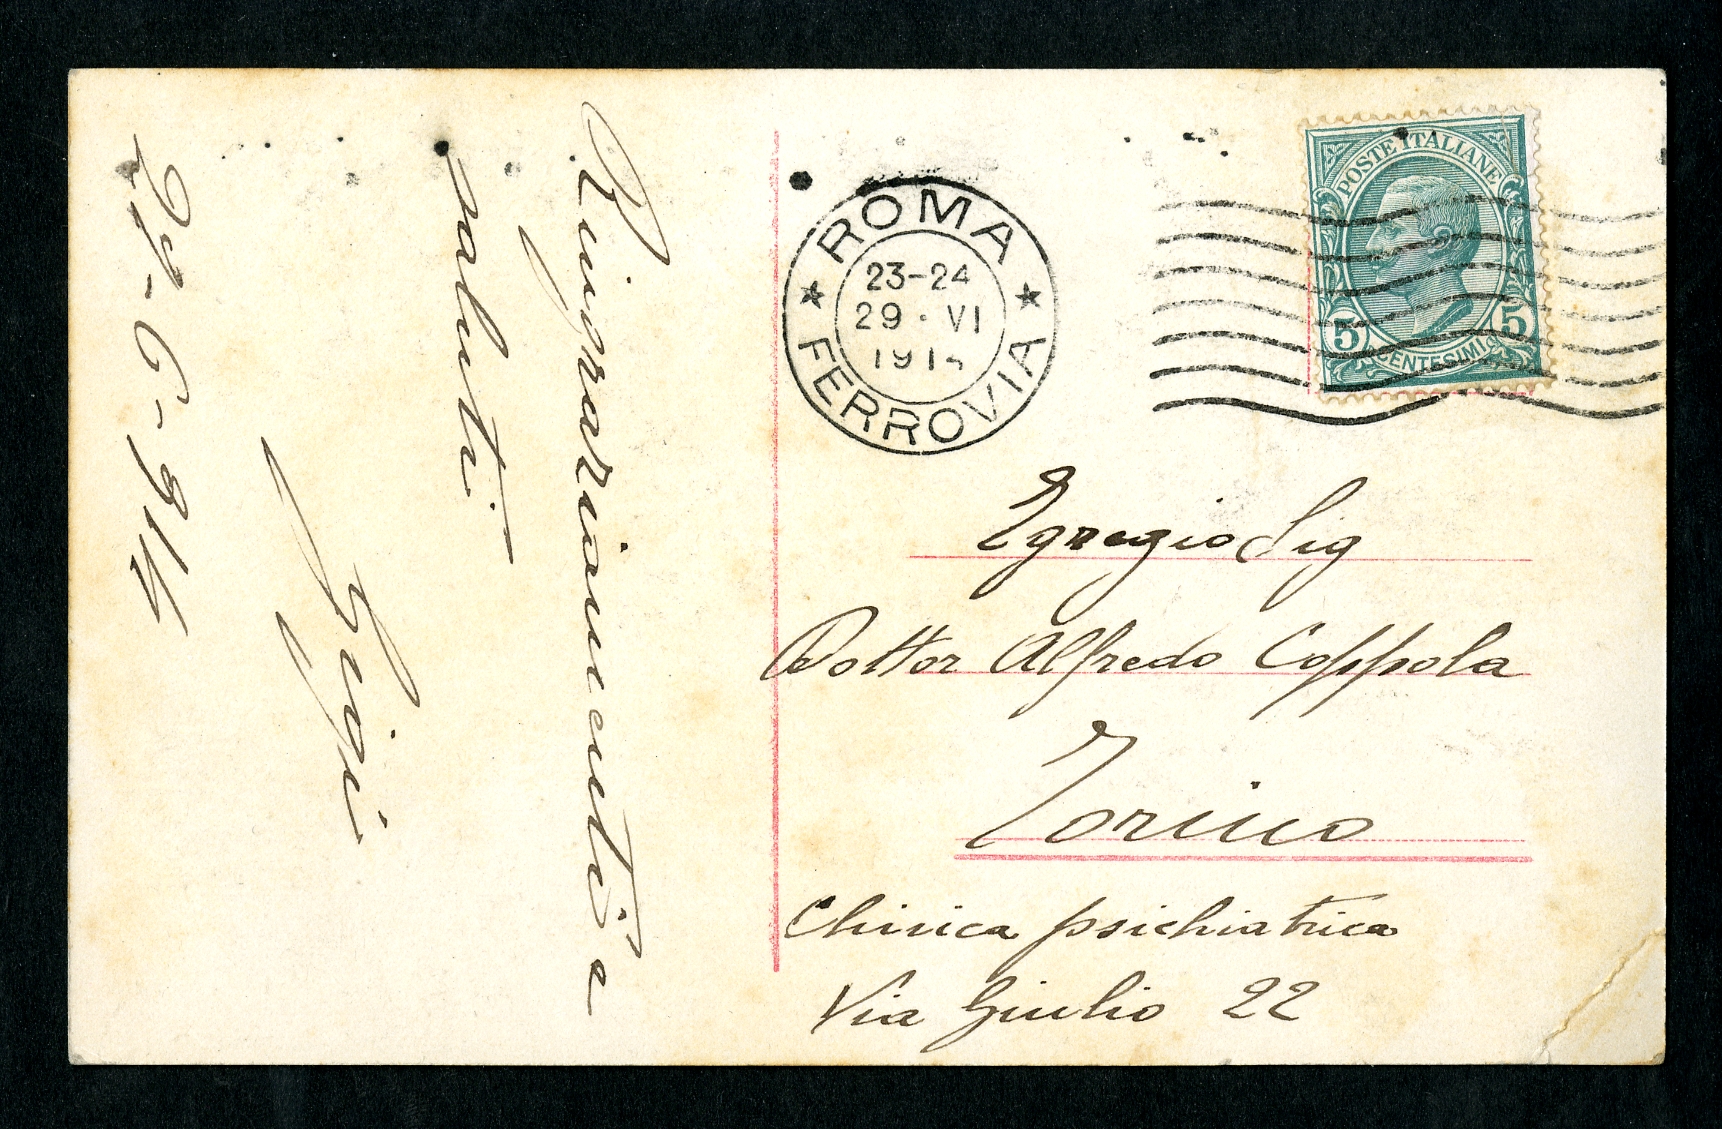 Ringraziamenti e
saluti
Gigi
29-6-914
ROMA
23-24
29·VI
191
FERROVIA
POSTE ITALIANE
5 CENTESIMI 5
Egregio Sig
Dottor Alfredo Coppola
Torino
Clinica psichiatrica
Via Giulio 22